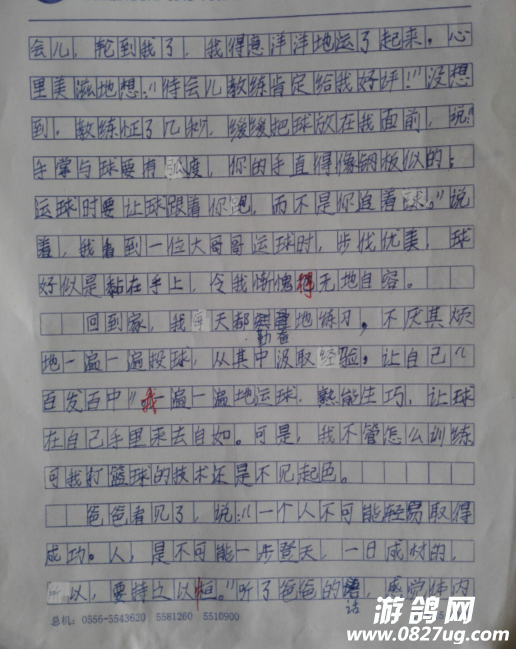 会儿，轮到我了，我得意洋洋地运了起来。心
里美滋滋地想：“待会儿教练肯定给我好评！”没想
到，教练怔了几秒，缓缓把球放在我面前，说：“
手掌与球要有弧度，你的手直得像钢板似的；
运球时要让球跟着你跑，而不是你追着球。”说
着，我看到一位大哥哥运球时，步伐优美，球
好似是黏在手上，令我惭愧得无地自容。
回到家，我每天都勤奋地练习，不厌其烦
地一遍一遍投球，从其中汲取经验，让自己“
百发百中”我一遍一遍地运球，熟能生巧，让球
在自己手里来去自如。可是，我不管怎么训练
可我打篮球的技术还是不见起色。
爸爸看见了，说：“一个人不可能轻易取得
成功。人，是不可能一步登天，一日成材的，
所以，要持之以恒。”听了爸爸的话，感觉体内
总机：0556-5543620 5581260 5510900
游鸽网
www.0827ug.com